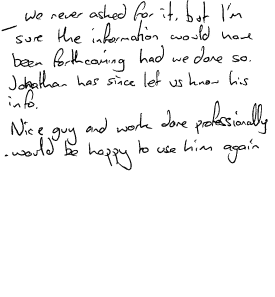 – we never asked for it, but I'm
sure the information would have
been forthcoming had we done so.
Jonathan has since let us know his
info.
Nice guy and work done professionally
- would be happy to use him again